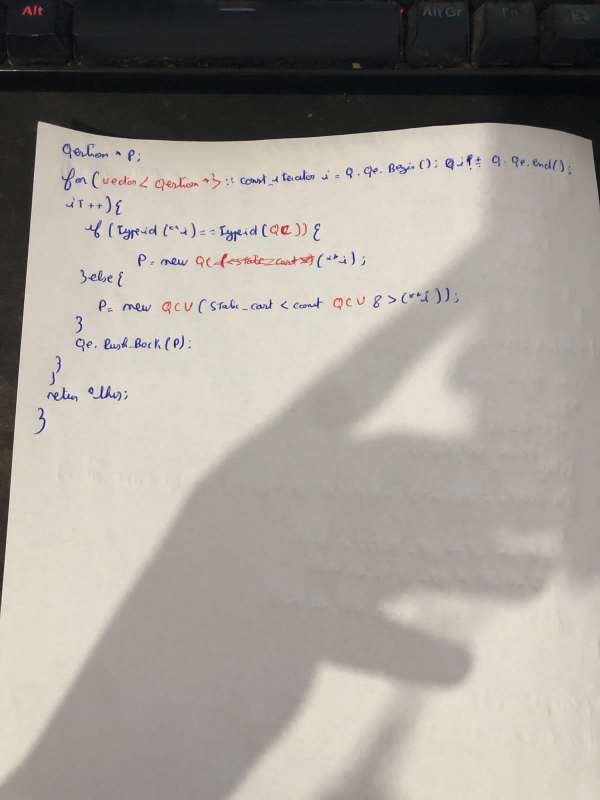 Alt
AltGr
Fn
Qestion * P;
for (vector < Qestion *> :: const_iterator i = Q. Qe. Begin (); i != Q. Qe. end();
i++) {
if (Typeid (**i) == Typeid (QC)) {
P = new QC (**i);
} else {
P = new QCU (static_cast < const QCU & > (**i));
}
Qe. Push_Back (P);
}
return *this;
}